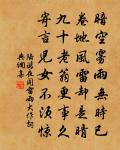 暗空霧雨無時已
卷地風雷卻是晴
九十老翁更事久
寄言兒女不須驚
陸游夜聞雷雨大作詞